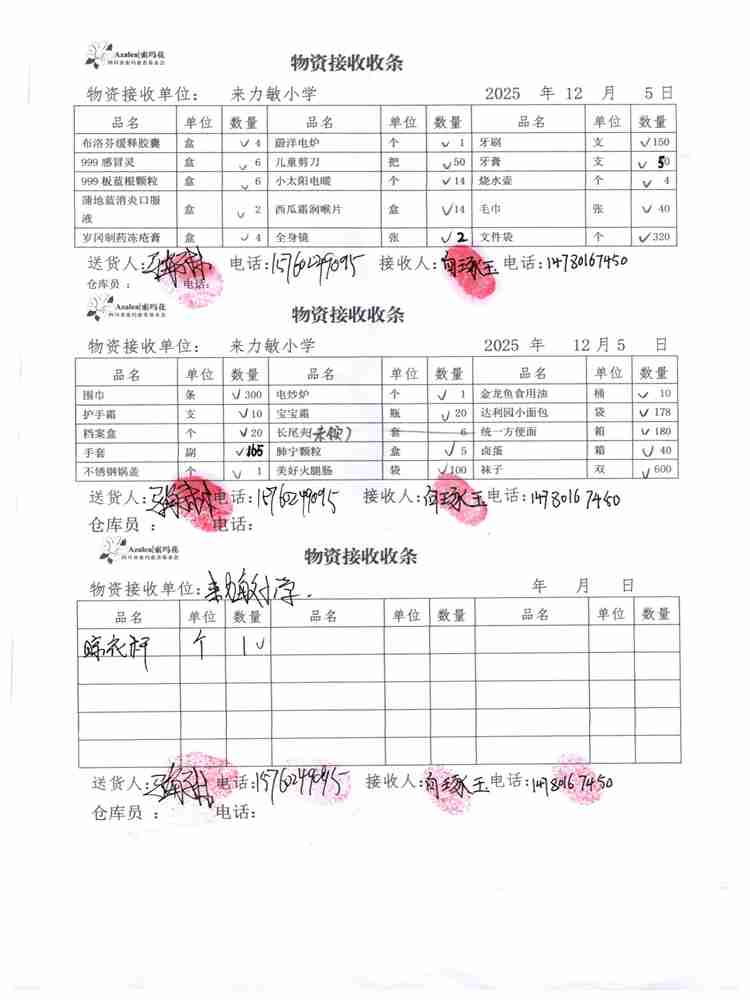 Azalea|索玛花
四川省索玛慈善基金会
物资接收收条
物资接收单位： 来力敏小学 2025 年 12 月 5 日
品名 单位 数量 品名 单位 数量 品名 单位 数量
布洛芬缓释胶囊 盒 ✓ 4 蔚洋电炉 个 ✓ 1 牙刷 支 ✓150
999 感冒灵 盒 ✓ 6 儿童剪刀 把 ✓50 牙膏 支 ✓ 50
999 板蓝根颗粒 盒 ✓ 6 小太阳电暖 个 ✓14 烧水壶 个 ✓ 4
蒲地蓝消炎口服液 盒 ✓ 2 西瓜霜润喉片 盒 ✓14 毛巾 张 ✓ 40
岁冈制药冻疮膏 盒 ✓ 4 全身镜 张 ✓ 2 文件袋 个 ✓320
送货人: 电话:15760249095 接收人:白琢玉 电话:14780167450
仓库员 : 电话:
Azalea|索玛花
四川省索玛慈善基金会
物资接收收条
物资接收单位： 来力敏小学 2025 年 12 月 5 日
品名 单位 数量 品名 单位 数量 品名 单位 数量
围巾 条 ✓ 300 电炒炉 个 ✓ 1 金龙鱼食用油 桶 ✓ 10
护手霜 支 ✓10 宝宝霜 瓶 ✓ 20 达利园小面包 袋 ✓ 178
档案盒 个 ✓20 长尾夹(未领) 套 6 统一方便面 箱 ✓ 180
手套 副 ✓165 肺宁颗粒 盒 ✓ 5 卤蛋 箱 ✓ 40
不锈钢锅盖 个 ✓ 1 美好火腿肠 袋 ✓100 袜子 双 ✓600
送货人: 电话:15760249095 接收人:白琢玉 电话:14780167450
仓库员 : 电话:
Azalea|索玛花
四川省索玛慈善基金会
物资接收收条
物资接收单位:来力敏小学. 年 月 日
品名 单位 数量 品名 单位 数量 品名 单位 数量
晾衣杆 个 1 ✓
送货人: 电话:15760249095 接收人:白琢玉 电话:14780167450
仓库员 : 电话: